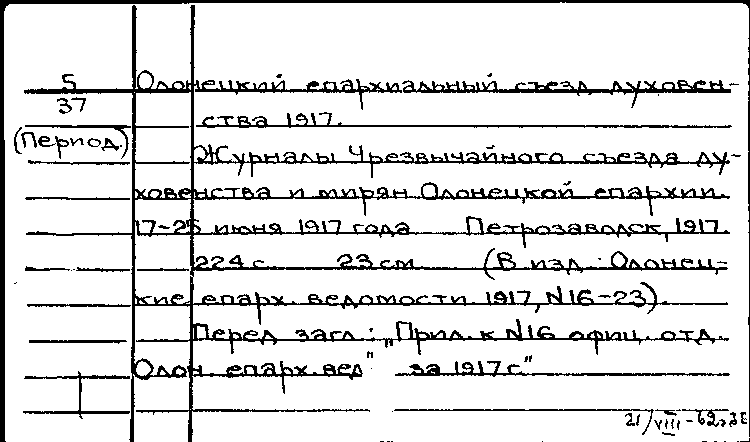 5 Олонецкий епархиальный съезд духовен-
37 ства 1917.
(Период.) Журналы Чрезвычайного съезда ду-
ховенства и мирян Олонецкой епархии.
17-25 июня 1917 года Петрозаводск, 1917.
224 с 23 см (В изд: Олонец-
кие епарх. ведомости 1917, N16-23).
Перед загл.: "Прил. к N16 офиц. отд.
Олон. епарх. вед" за 1917 г."
21/VIII-62